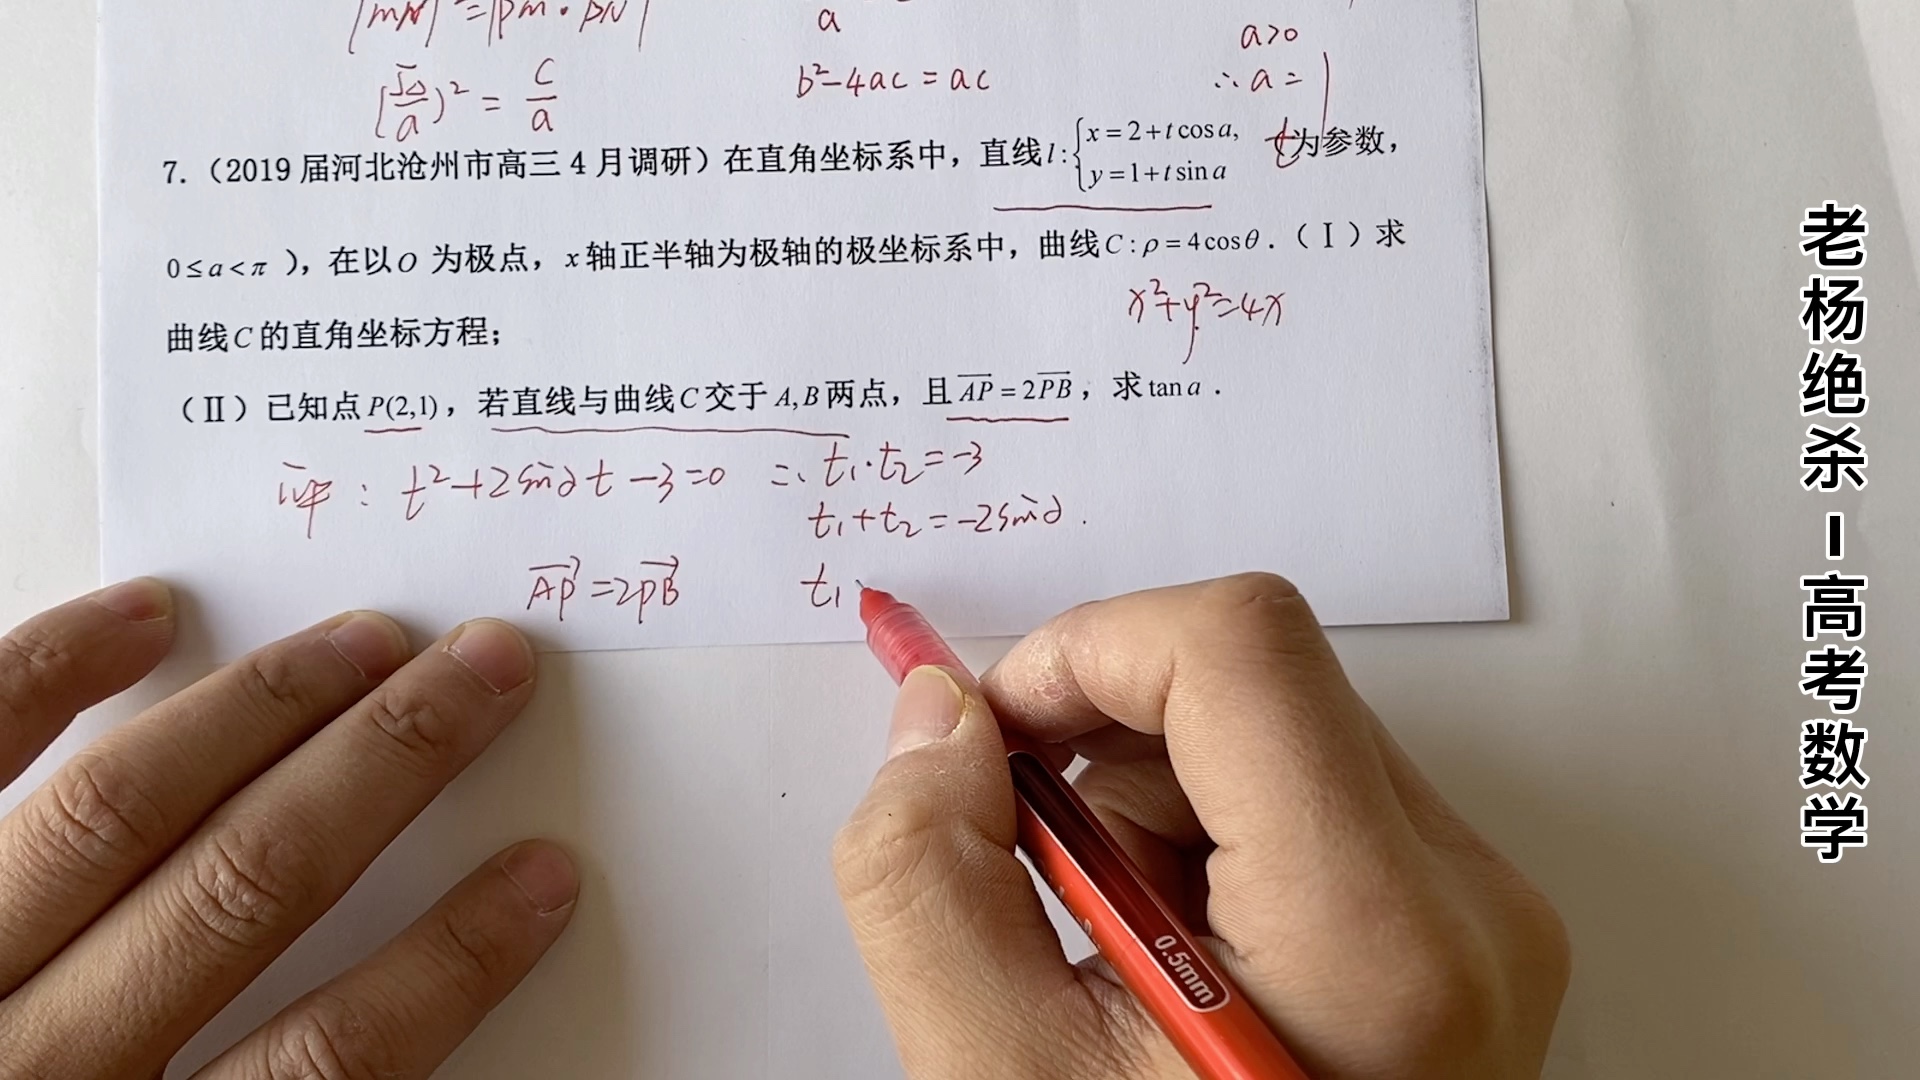 |MN|²=|PM·PN|
a
a>0
(√Δ/a)² = c/a
b²-4ac=ac
∴a=1
7.（2019届河北沧州市高三4月调研）在直角坐标系中，直线l:{x=2+tcosa, y=1+tsina t为参数，
0≤a<π），在以O为极点，x轴正半轴为极轴的极坐标系中，曲线C:ρ=4cosθ.（Ⅰ）求
x²+y²=4x
曲线C的直角坐标方程；
（Ⅱ）已知点P(2,1)，若直线与曲线C交于A,B两点，且AP=2PB，求tana.
: t²+2sinαt-3=0 ∴t₁·t₂=-3
t₁+t₂=-2sinα.
AP=2PB t₁
0.5mm
老杨绝杀-高考数学